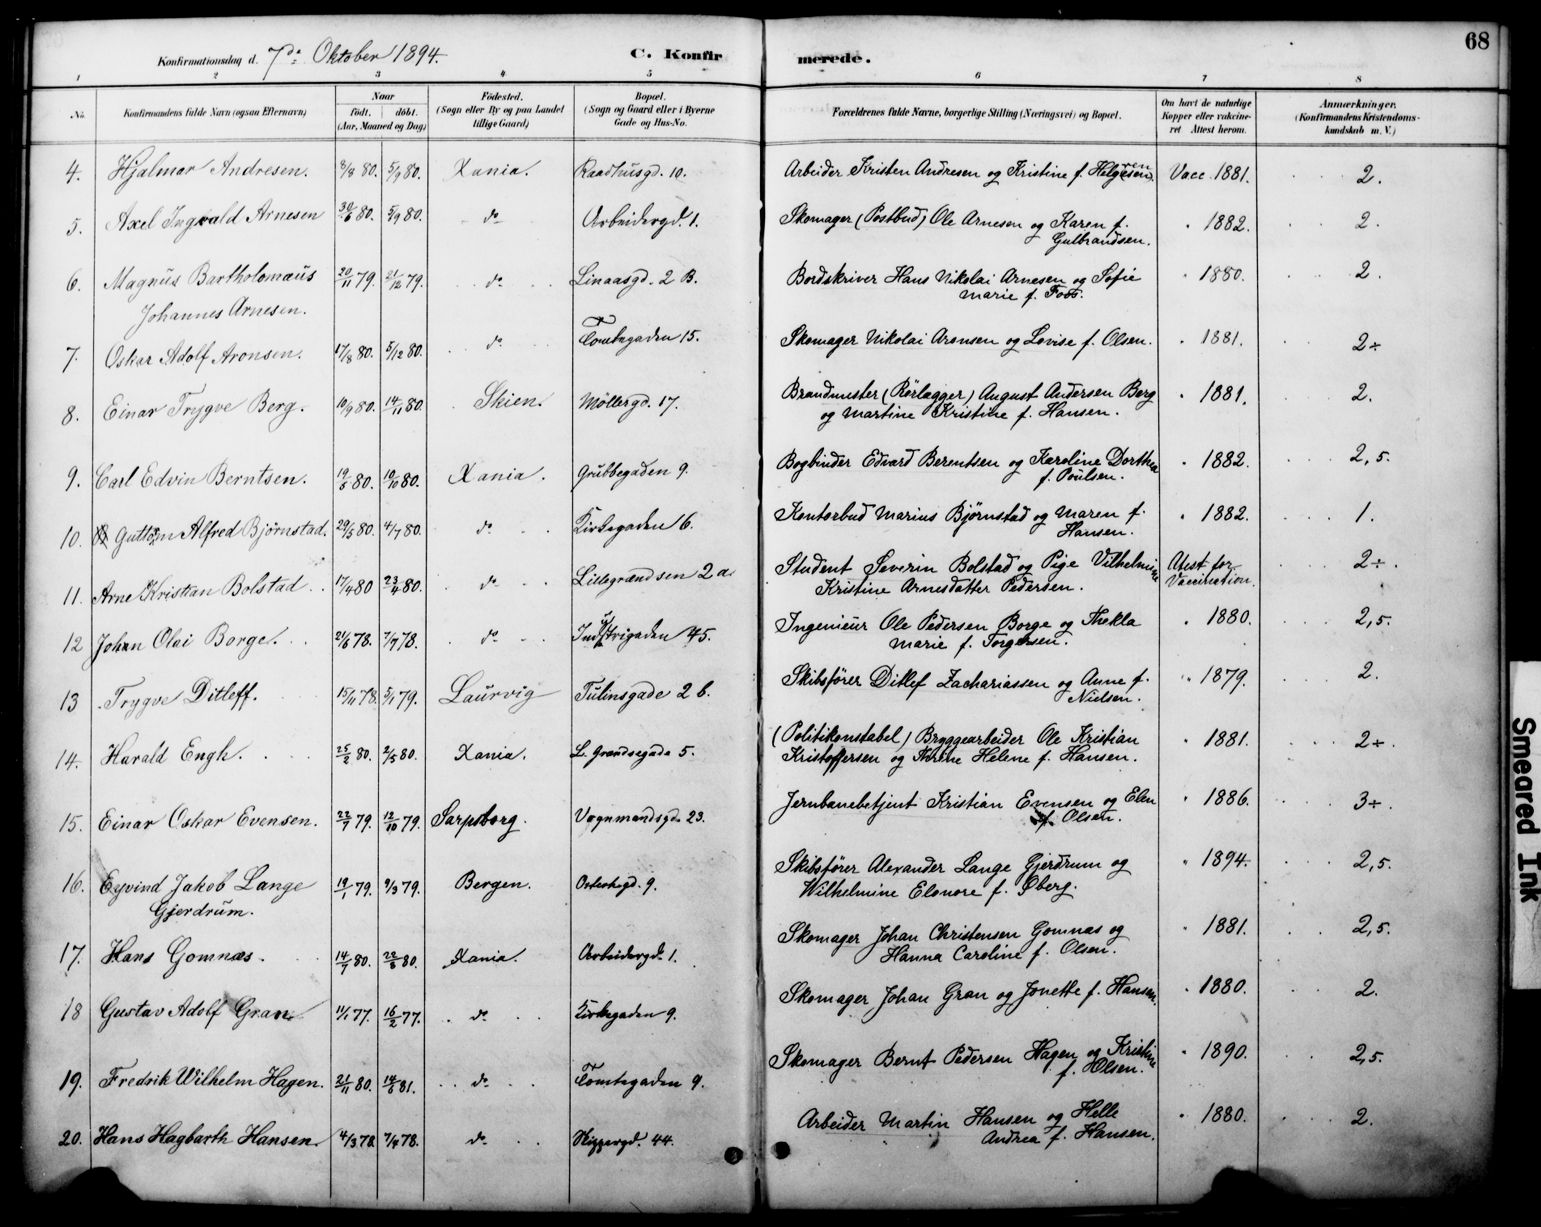 68
Konfirmationsdag d. 7de Oktober 1894.
C. Konfirmerede.
1 2 3 4 5 6 7 8
No. Konfirmandens fulde Navn (ogsaa Efternavn) Naar født. døbt. (Aar, Maaned og Dag) Fødested. (Sogn eller By og paa Landet tillige Gaard) Bopæl. (Sogn og Gaard eller i Byerne Gade og Hus-No. Forældrenes fulde Navne, borgerlige Stilling (Næringsvei) og Bopæl. Om havt de naturlige Kopper eller vaccineret Attest herom. Anmerkninger. (Konfirmandens Kristendomskundskab m. V.)
4. Hjalmar Andresen. 8/8 80. 5/9 80. Xania. Raadhusgd. 10. Arbeider Kristen Andresen og Kristine f. Helgesen. Vacc. 1881. 2.
5. Axel Ingvald Arnesen 30/6 80. 5/9 80. do Arbeidergd. 1. Skomager (Postbud) Ole Arnesen og Karen f. " 1882. 2.
Gulbrandsen.
6. Magnus Bartholomæus 20/11 79. 21/12 79. do Linaasgd. 2 B. Bordskriver Hans Nikolai Arnesen og Sofie " 1880. 2.
Johannes Arnesen. Marie f. Foss.
7. Oskar Adolf Aronsen. 17/8 80. 5/12 80. do Tomtegaden 15. Skomager Nikolai Aronsen og Lovise f. Olsen. " 1881. 2÷
8. Einar Trygve Berg. 10/9 80. 14/11 80. Skien. Møllergd. 17. Brandmester (Rørlægger) August Andersen Berg " 1881. 2.
og Martine Kristine f. Hansen.
9. Carl Edvin Berntsen. 19/5 80. 10/10 80. Xania. Grubbegaden 9. Bogbinder Edvard Berentsen og Karoline Dorthea " 1882. 2,5.
f. Poulsen.
10. Guttorm Alfred Bjørnstad. 29/5 80. 4/7 80. do Kirkegaden 6. Kontorbud Marius Bjørnstad og Maren f. " 1882. 1.
Hansen.
11. Arne Kristian Bolstad. 17/4 80 23/4 80. do Lillegrændsen 2 a. Student Severin Bolstad og Pige Vilhelmine Atest for 2÷.
Kristine Arnesdatter Pedersen. Vaccination.
12 Johan Olai Borge. 21/6 78. 7/7 78. do Industrigaden 45. Ingenieur Ole Pedersen Borge og Thekla " 1880. 2,5.
Marie f. Torgersen.
13 Trygve Ditleff. 15/11 78. 5/1 79. Laurvig Tulinsgade 2 b. Skibsfører Ditlef Zachariassen og Anne f. " 1879. 2.
Nielsen.
14. Harald Engh. 25/2 80. 2/5 80. Xania. L. Grændsegade 5. (Politikonstabel) Bryggearbeider Ole Kristian " 1881. 2÷.
Kristoffersen og Thrine Helene f. Hansen.
15. Einar Oskar Evensen. 22/7 79. 12/10 79. Sarpsborg. Vognmandsgd. 23. Jernbanebetjent Kristian Evensen og Elen " 1886. 3÷.
f. Olsen.
16. Eyvind Jakob Lange 19/1 79. 9/3 79. Bergen. Osterhsgd. 9. Skibsfører Alexander Lange Gjerdrum og " 1894. 2,5.
Gjerdrum. Wilhelmine Elenore f. Øberg.
17. Hans Gomnæs. 14/7 80. 22/8 80. Xania. Arbeidergd. 1. Skomager Johan Christensen Gomnæs og " 1881. 2,5.
Hanna Caroline f. Olsen.
18 Gustav Adolf Gran. 11/1 77. 16/2 77. do Kirkegaden 9. Skomager Johan Gran og Jonette f. Hansen. " 1880. 2.
19. Fredrik Wilhelm Hagen. 21/11 80. 14/6 81. do Tomtegaden 9. Skomager Bernt Pedersen Hagen og Kristine " 1890. 2,5.
f. Olsen.
20. Hans Hagbarth Hansen. 4/3 78. 7/4 78. do Skippergd. 44. Arbeider Martin Hansen og Helle " 1880. 2.
Andrea f. Hansen.
Smeared Ink